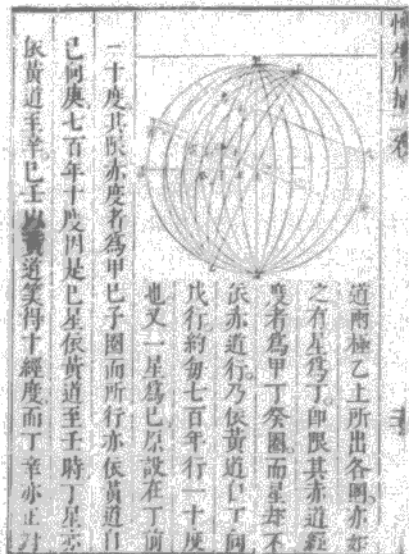 道兩極乙上所出各圈亦如
之有星為丁即限其赤道經
度者為甲丁癸圈而星却不
依赤道行乃依黃道自丁向
戊行約每七百年行一十度
也又一星為巳原設在丁前
二十度其限赤度者為甲巳子圈而所行亦依黃道自
巳向庚七百年十度因是巳星依黃道至壬時丁星亦
依黃道至辛巳壬黃道筭得十經度而丁辛亦正對